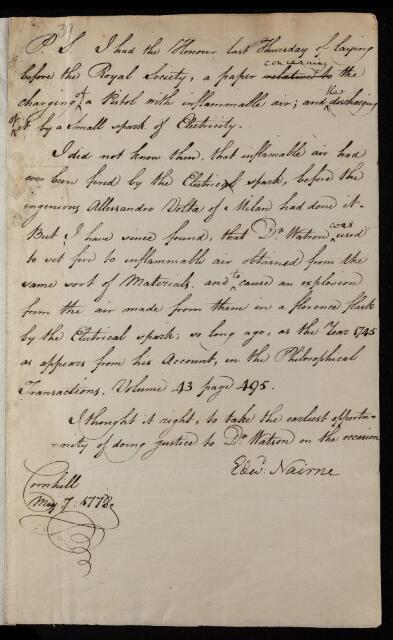 39
P. S. I had the Honour last Thursday of laying
before the Royal Society, a paper relative to concerning the
charging of a Pistol with inflammable air; and the discharging
of it by a Small spark of Electricity.
I did not know then, that inflamable air had
ever been fired by the Electrical spark, before the
ingenious Allessandro Volta of Milan had done it.
But I have since found, that Dr. Watson was used
to set fire to inflammable air obtained from the
same sort of Materials. and to cause an explosion
from the air made from them in a florence flask
by the Eletrical spark; so long ago, as the Year 1745
as appears from his Account, in the Philosophical
Transactions, Volume 43 page 495.
I thought it right, to take the earliest opportu-
=nity of doing justice to Dr. Watson on the occasion
Edwd. Nairne
Cornhill
May 7. 1778